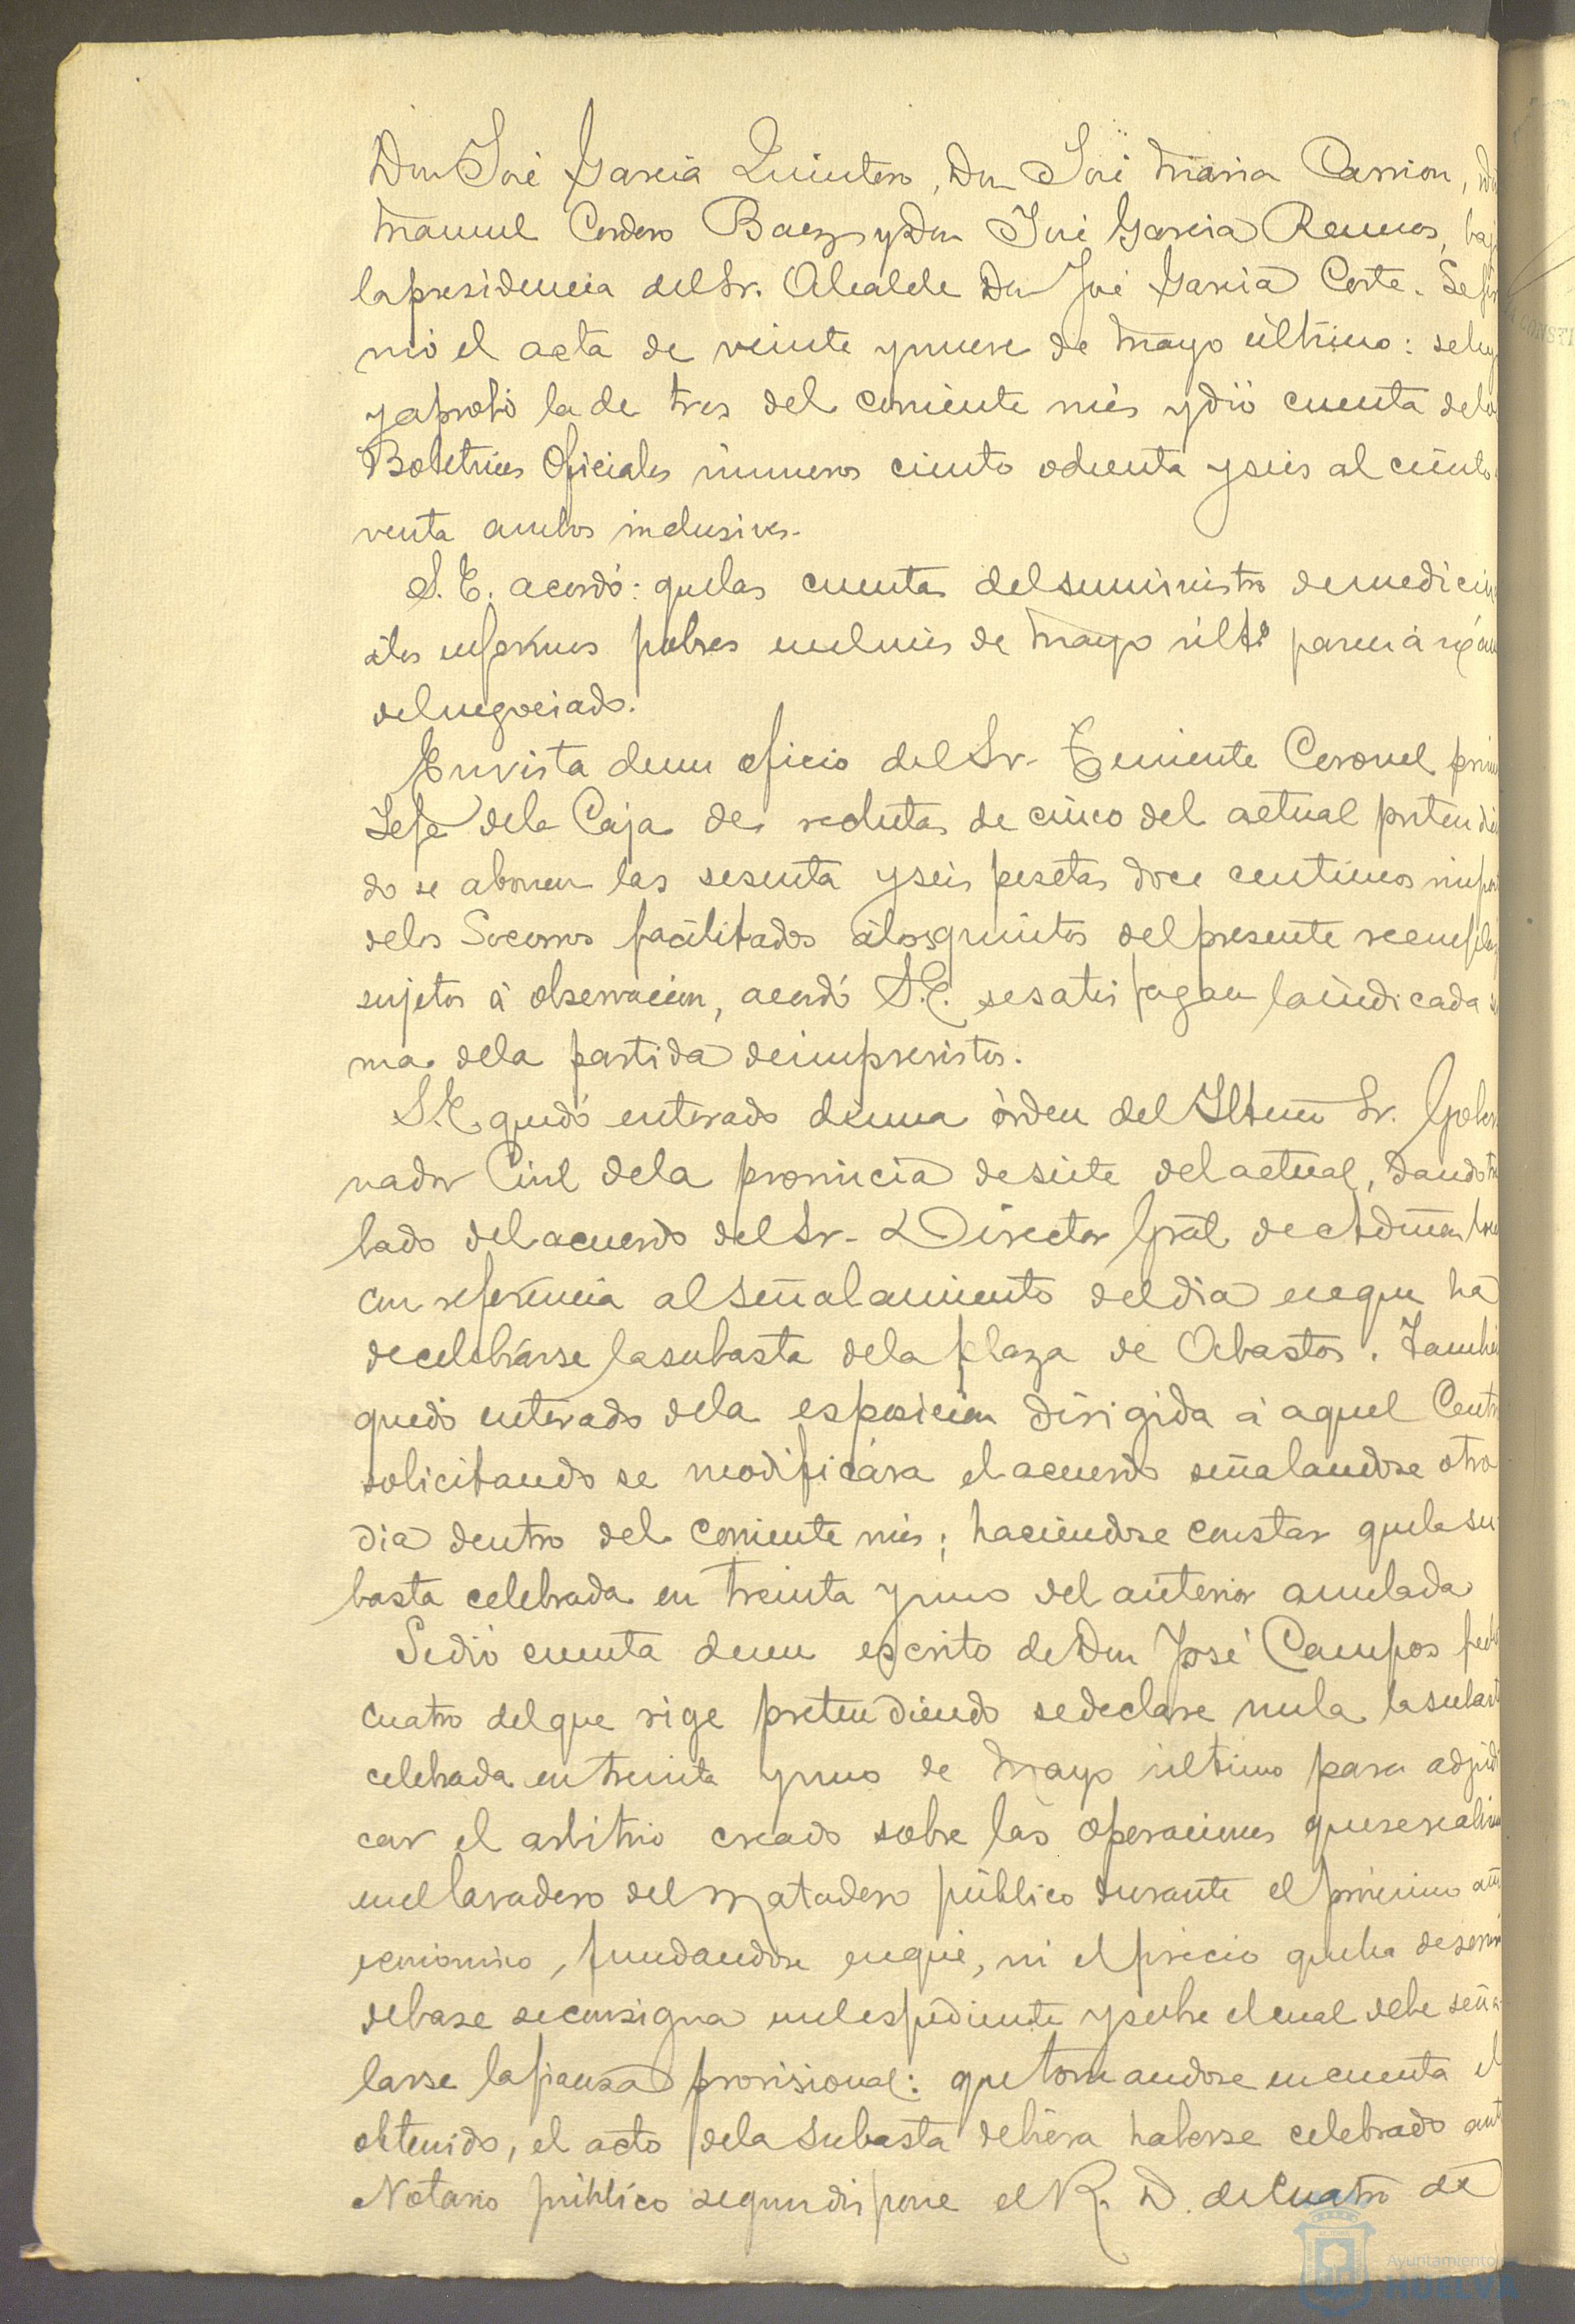 Don José Garcia Quintero, Don José Maria Carrion,
Manuel Cordero Baez y Don José Garcia Ramos, baj
la presidencia del Sr. Alcalde Don José Garcia Corte. Se fir
mó el acta de veinte y nueve de Mayo último: se ley
y aprobó la de tres del corriente mes y dió cuenta de los
Boletines Oficiales números ciento ochenta y seis al ciento
venta ambos inclusives.
S. E. acordó: que las cuentas del suministro de medicin
á los enfermos pobres en el mes de Mayo últº pasen á exám
del negociado.
En vista de un oficio del Sr. Teniente Coronel prim
Jefe de la Caja de reclutas de cinco del actual pretendien
do se abonen las sesenta y seis pesetas doce centimos impor
de los Socorros facilitados á los quintos del presente reempla
sujetos á observacion, acordó S.E. se satisfagan la indicada su
ma de la partida de imprevistos.
S.E. quedó enterado de una órden del Iltmo Sr. Gober
nador Civil de la provincia de siete del actual, dando tras
lado del acuerdo del Sr. Director Gral de Admon
con referencia al señalamiento del dia en que ha
de celebrárse la subasta de la plaza de Abastos. Tambien
quedó enterado de la esposicion dirigida á aquel Centro
solicitando se modificára el acuerdo señalandose otro
dia dentro del corriente mes; haciendose constar que la su
basta celebrada en treinta y uno del anterior anulada
Se dió cuenta de un escrito de Don José Campos fecha
cuatro del que rige pretendiendo se declare nula la subast
celebrada en treinta y uno de Mayo último para adjudi
car el arbitrio creado sobre las operaciones que se realizan
en el lavadero del Matadero público durante el próximo año
económico, fundandose en que, ni el precio que ha de servir
de base se consigna en el espediente y sobre el cual debe seña
larse la fianza provisional: que tomandose en cuenta el
obtenido, el acto de la Subasta debiera haberse celebrado ante
Notario público segun dispone el R. D. de Cuatro de
Ayuntamiento
HUELVA